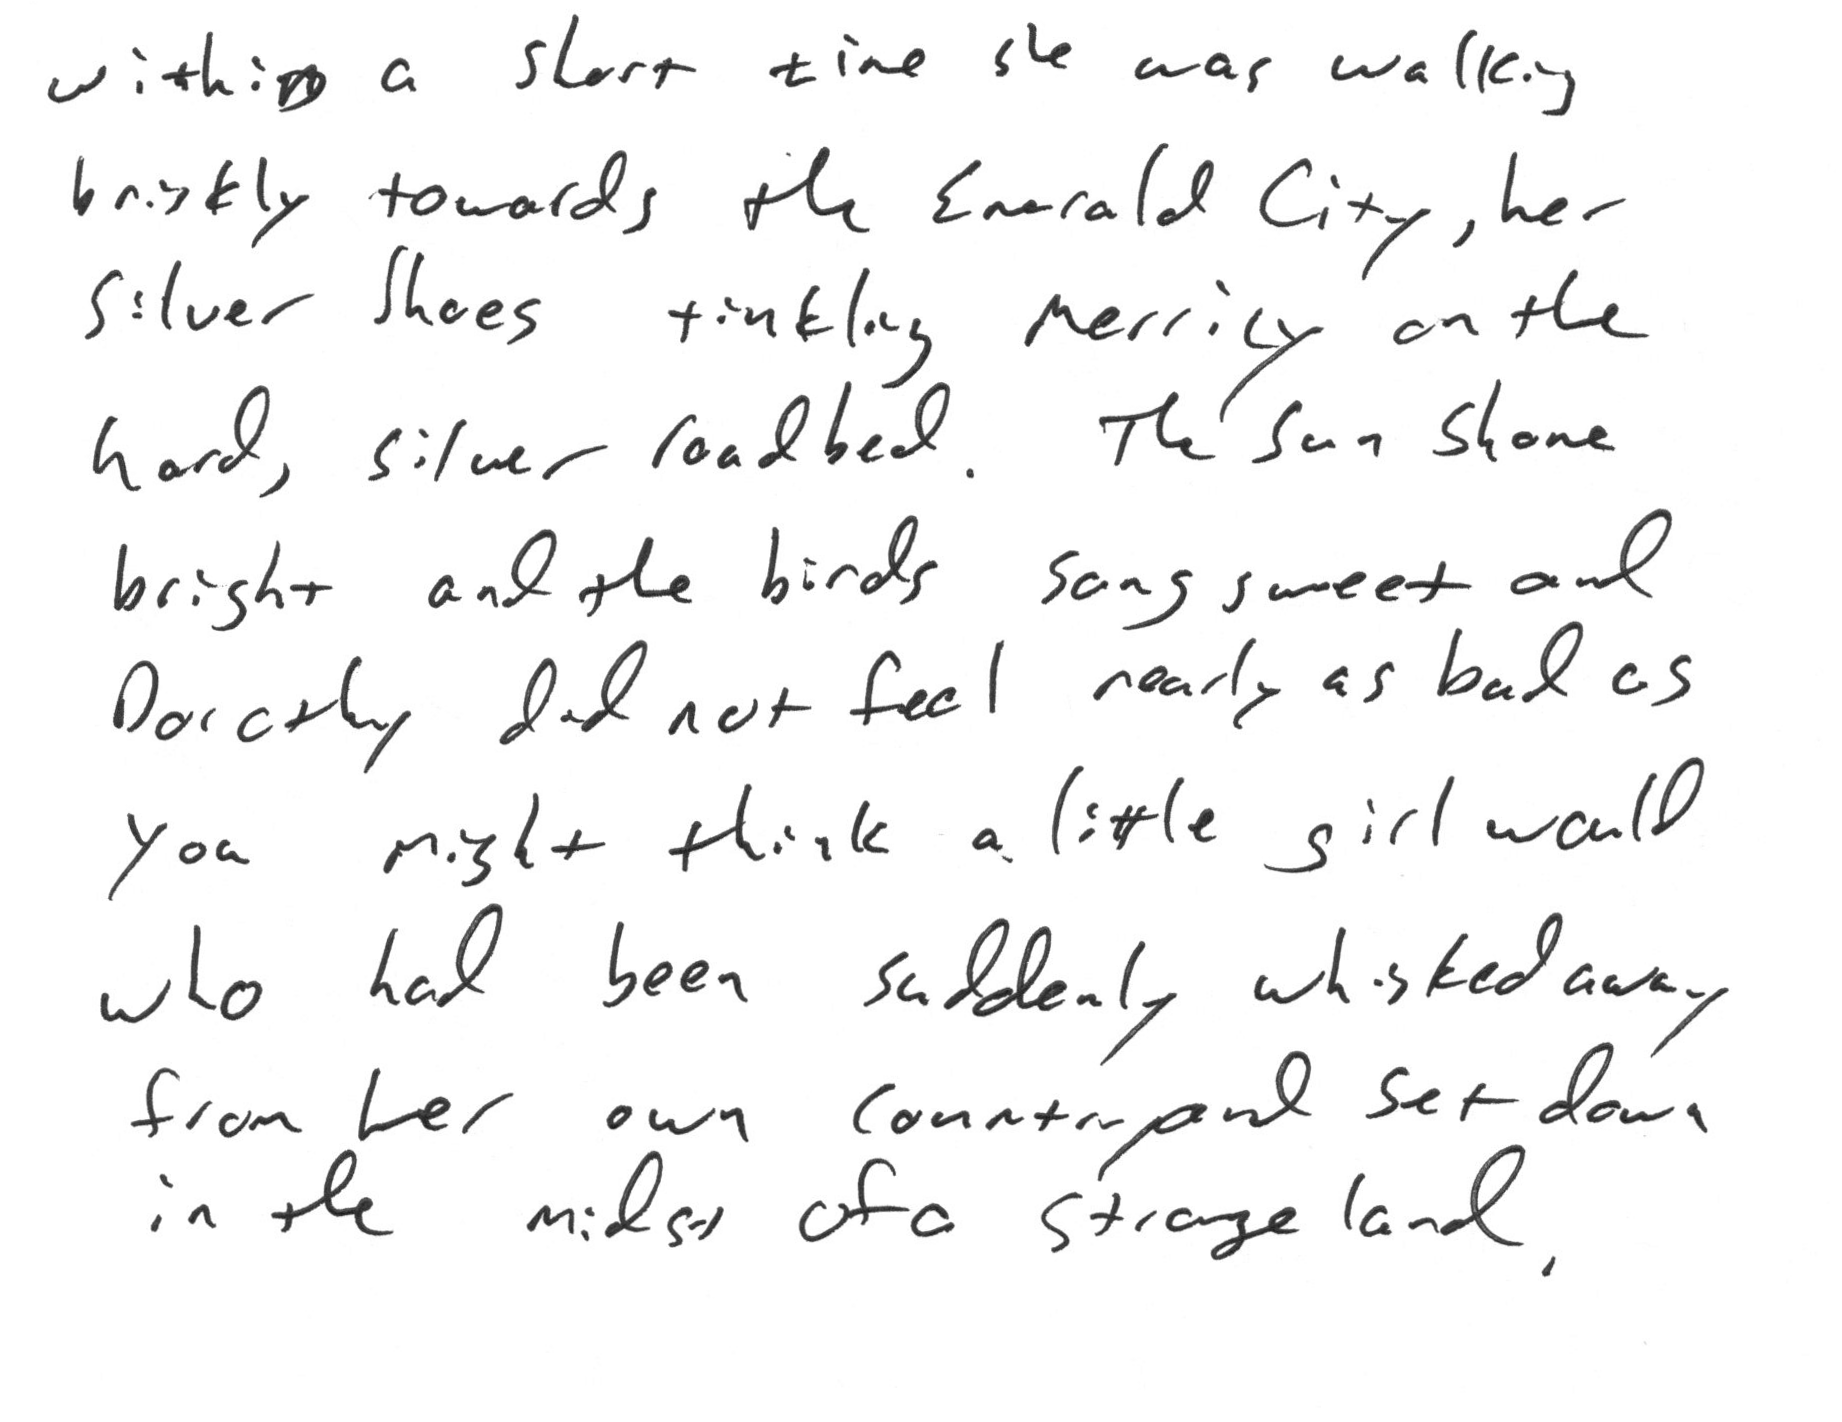 within a short time she was walking
briskly towards the Emerald City, her
Silver Shoes tinkling merrily on the
hard, silver roadbed. The sun shone
bright and the birds sang sweet and
Dorothy did not feel nearly as bad as
you might think a little girl would
who had been suddenly whisked away
from her own country and set down
in the midst of a strange land.